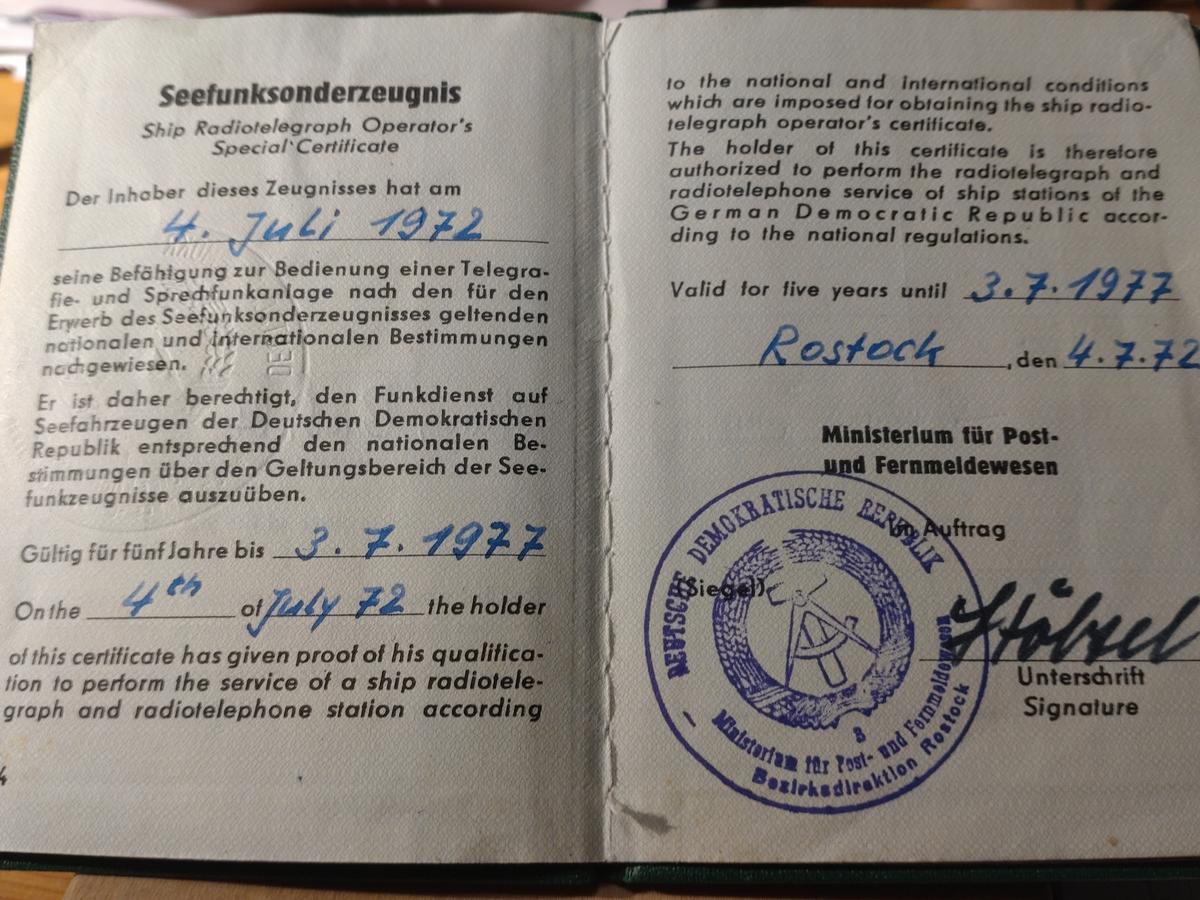 Seefunksonderzeugnis
Ship Radiotelegraph Operator's
Special Certificate
Der Inhaber dieses Zeugnisses hat am
4. Juli 1972
seine Befähigung zur Bedienung einer Telegra-
fie- und Sprechfunkanlage nach den für den
Erwerb des Seefunksonderzeugnisses geltenden
nationalen und internationalen Bestimmungen
nachgewiesen.
Er ist daher berechtigt, den Funkdienst auf
Seefahrzeugen der Deutschen Demokratischen
Republik entsprechend den nationalen Be-
stimmungen über den Geltungsbereich der See-
funkzeugnisse auszuüben.
Gültig für fünf Jahre bis 3. 7. 1977
On the 4th of July 72 the holder
of this certificate has given proof of his qualifica-
tion to perform the service of a ship radiotele-
graph and radiotelephone station according
4
to the national and international conditions
which are imposed for obtaining the ship radio-
telegraph operator's certificate.
The holder of this certificate is therefore
authorized to perform the radiotelegraph and
radiotelephone service of ship stations of the
German Democratic Republic accor-
ding to the national regulations.
Valid for five years until 3.7.1977
Rostock, den 4.7.72
Ministerium für Post-
und Fernmeldewesen
Im Auftrag
(Siegel)
DEUTSCHE DEMOKRATISCHE REPUBLIK
3
Ministerium für Post- und Fernmeldewesen
Bezirksdirektion Rostock
Unterschrift
Signature